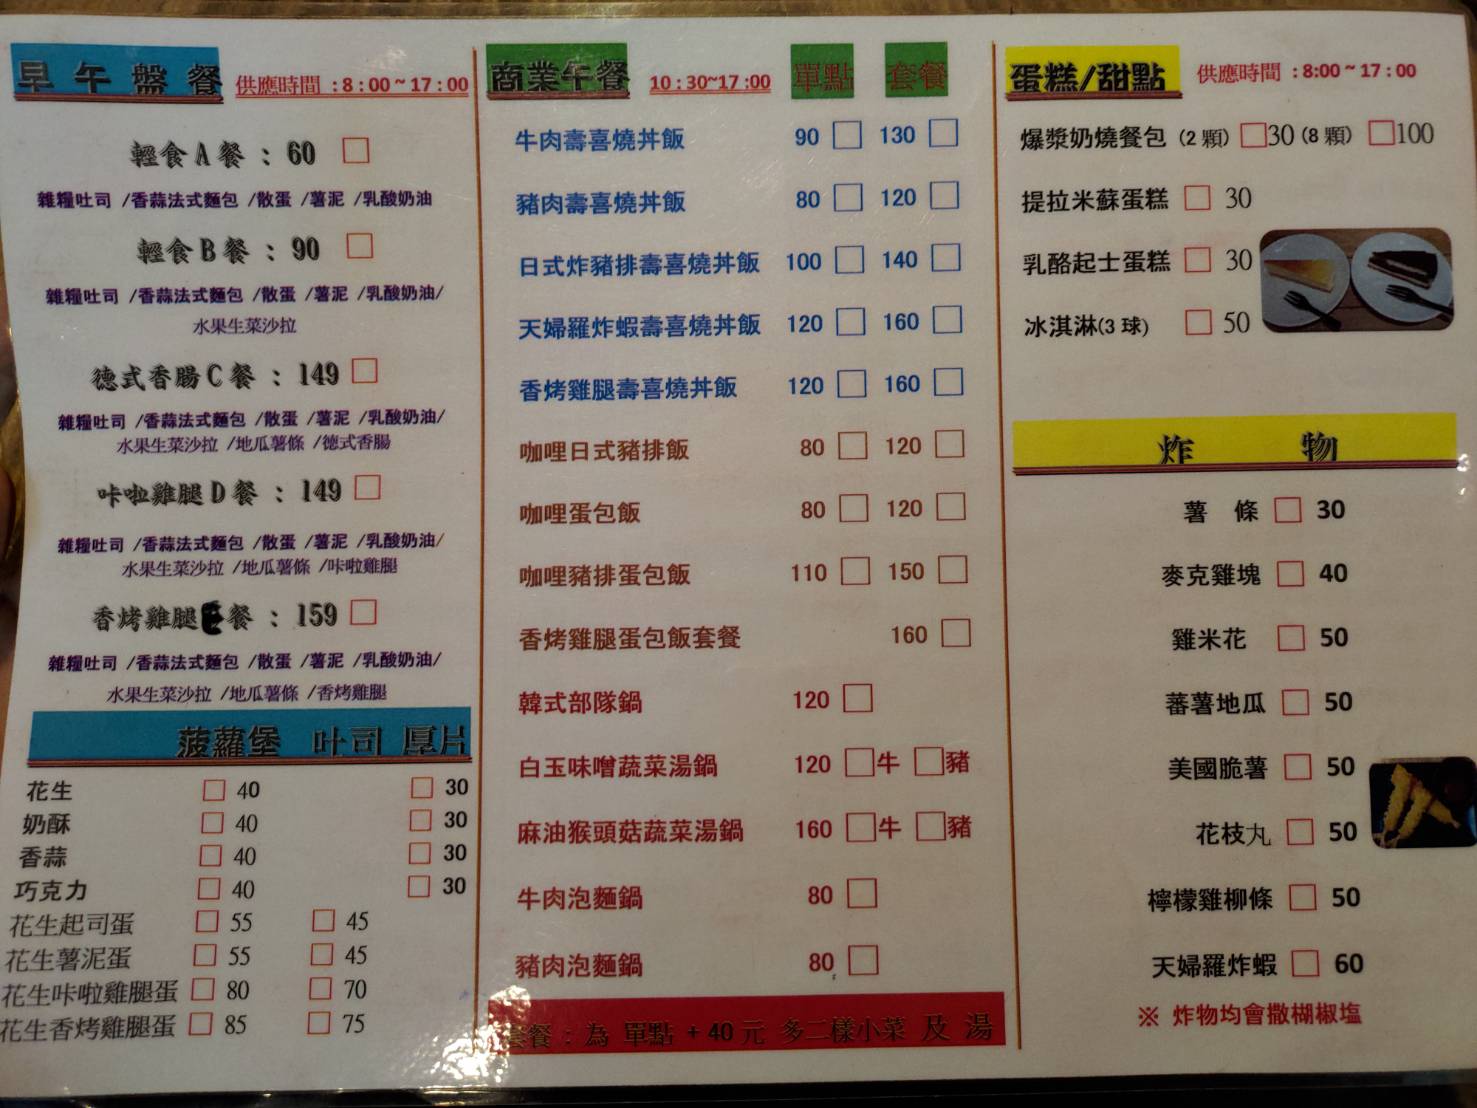 早午盤餐 供應時間 : 8 : 00 ~ 17 : 00
輕食A餐 : 60 □
雜糧吐司 /香蒜法式麵包 /散蛋 /薯泥 /乳酸奶油
輕食B餐 : 90 □
雜糧吐司 /香蒜法式麵包 /散蛋 /薯泥 /乳酸奶油/
水果生菜沙拉
德式香腸C餐 : 149 □
雜糧吐司 /香蒜法式麵包 /散蛋 /薯泥 /乳酸奶油/
水果生菜沙拉 /地瓜薯條 /德式香腸
咔啦雞腿D餐 : 149 □
雜糧吐司 /香蒜法式麵包 /散蛋 /薯泥 /乳酸奶油/
水果生菜沙拉 /地瓜薯條 /咔啦雞腿
香烤雞腿E餐 : 159 □
雜糧吐司 /香蒜法式麵包 /散蛋 /薯泥 /乳酸奶油/
水果生菜沙拉 /地瓜薯條 /香烤雞腿
菠蘿堡 吐司 厚片
花生 □ 40 □ 30
奶酥 □ 40 □ 30
香蒜 □ 40 □ 30
巧克力 □ 40 □ 30
花生起司蛋 □ 55 □ 45
花生薯泥蛋 □ 55 □ 45
花生咔啦雞腿蛋 □ 80 □ 70
花生香烤雞腿蛋 □ 85 □ 75
商業午餐 10 : 30~17 :00 單點 套餐
牛肉壽喜燒丼飯 90 □ 130 □
豬肉壽喜燒丼飯 80 □ 120 □
日式炸豬排壽喜燒丼飯 100 □ 140 □
天婦羅炸蝦壽喜燒丼飯 120 □ 160 □
香烤雞腿壽喜燒丼飯 120 □ 160 □
咖哩日式豬排飯 80 □ 120 □
咖哩蛋包飯 80 □ 120 □
咖哩豬排蛋包飯 110 □ 150 □
香烤雞腿蛋包飯套餐 160 □
韓式部隊鍋 120 □
白玉味噌蔬菜湯鍋 120 □牛 □豬
麻油猴頭菇蔬菜湯鍋 160 □牛 □豬
牛肉泡麵鍋 80 □
豬肉泡麵鍋 80 □
套餐 : 為 單點 + 40 元 多二樣小菜 及 湯
蛋糕/甜點 供應時間 : 8:00 ~ 17 : 00
爆漿奶燒餐包 (2 顆) □30 (8 顆) □100
提拉米蘇蛋糕 □ 30
乳酪起士蛋糕 □ 30
冰淇淋(3 球) □ 50
炸 物
薯 條 □ 30
麥克雞塊 □ 40
雞米花 □ 50
蕃薯地瓜 □ 50
美國脆薯 □ 50
花枝丸 □ 50
檸檬雞柳條 □ 50
天婦羅炸蝦 □ 60
※ 炸物均會撒楜椒塩